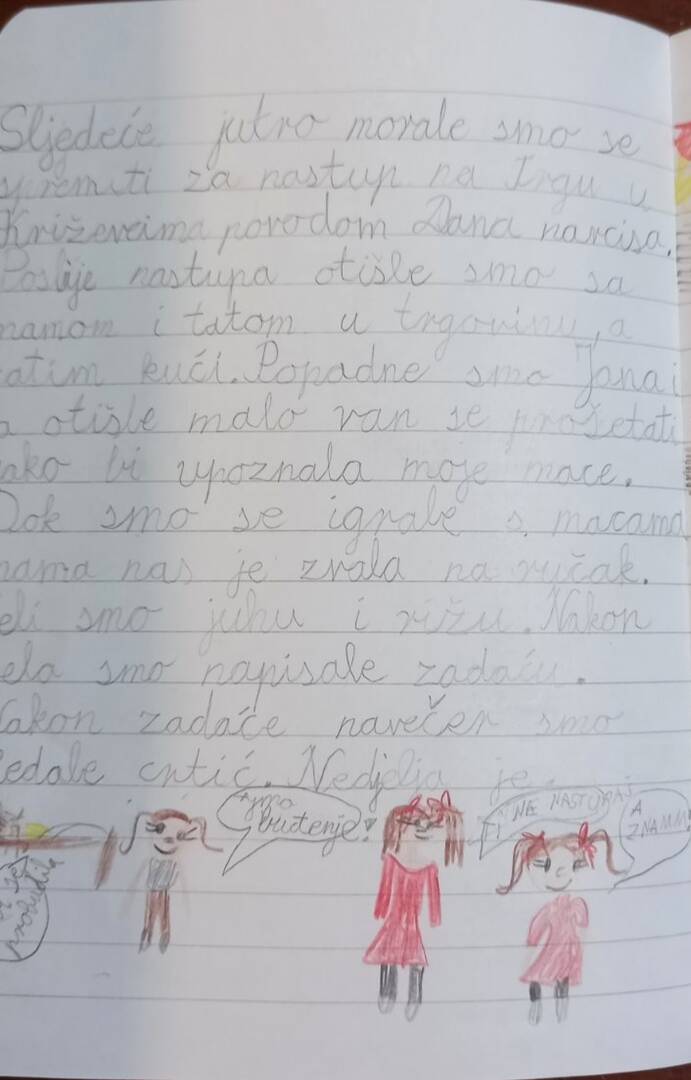 Sljedeće jutro morale smo se
spremiti za nastup na Trgu u
Križevcima povodom Dana narcisa.
Poslije nastupa otišle smo sa
mamom i tatom u trgovinu, a
zatim kući. Popadne smo Jana i
ja otišle malo van se prošetati
kako bi upoznala moje mace.
Dok smo se igrale s macama
mama nas je zvala na ručak.
Jeli smo juhu i rižu. Nakon
jela smo napisale zadaću.
Nakon zadaće navečer smo
gledale crtić. Nedjelja je
AJMO
buđenje!
TI NE NASTUPAŠ
A
ZNAMM
probudila